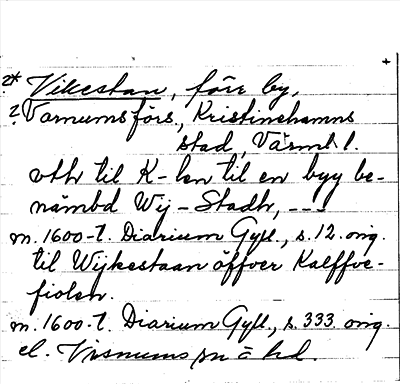 ?* Vikestan, förr by,
? Varnumsförs., Kristinehamns
stad, Värml l.
vthi til K-kn til en byy be-
nämbd Wij-Stadh, ---
m. 1600-t. Diarium Gyll., s. 12. orig.
til Wijkestaan öffver Kalffve-
fiolen.
m. 1600-t. Diarium Gyll., s. 333. orig.
el. Visnums sn o hd.